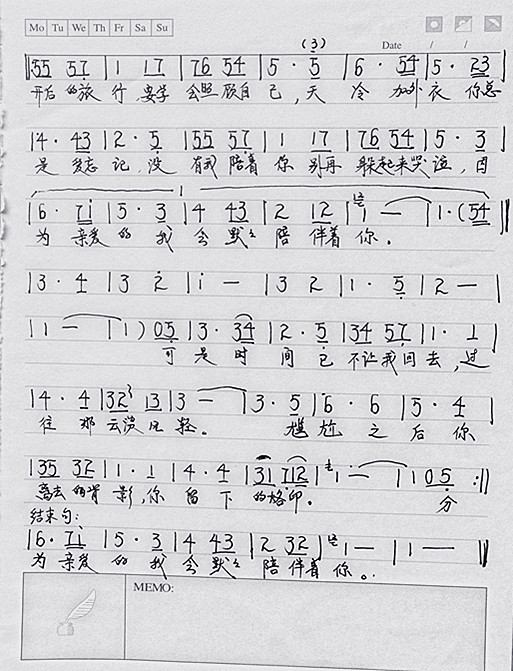 Mo Tu We Th Fr Sa Su
(3) Date / /
‖55 57 | 1 17 | 76 54 | 5 · 5 | 6 · 54 | 5 · 23
开后的旅行,要学会照顾自己,天冷加外衣你总
| 4 · 43 | 2 · 5 | 55 57 | 1 17 | 76 54 | 5 · 3 |
是爱忘记,没有我陪着你别再躲起来哭泣,因
| 6 · 7i | 5 · 3 | 4 43 | 2 12 | 1 — | 1 · (54 ‖
为亲爱的我会默々陪伴着你。
| 3 · 4 | 3 2 | i — | 3 2 | 1 · 5 | 2 — |
| 1 — | 1 ) 05 | 3 · 34 | 2 · 5 | 34 57 | 1 · 1 |
可是时间已不让我回去,过
| 4 · 4 | 32 13 | 3 — | 3 · 5 | 6 · 6 | 5 · 4 |
往那云淡风轻。尴尬之后你
| 35 32 | 1 · 1 | 4 · 4 | 31 712 | 1 — | 1 05 :‖
离去的背影,你留下的烙印。分
结束句:
| 6 · 7i | 5 · 3 | 4 43 | 2 32 | 1 — | 1 — ‖
为亲爱的我会默々陪伴着你。
MEMO: